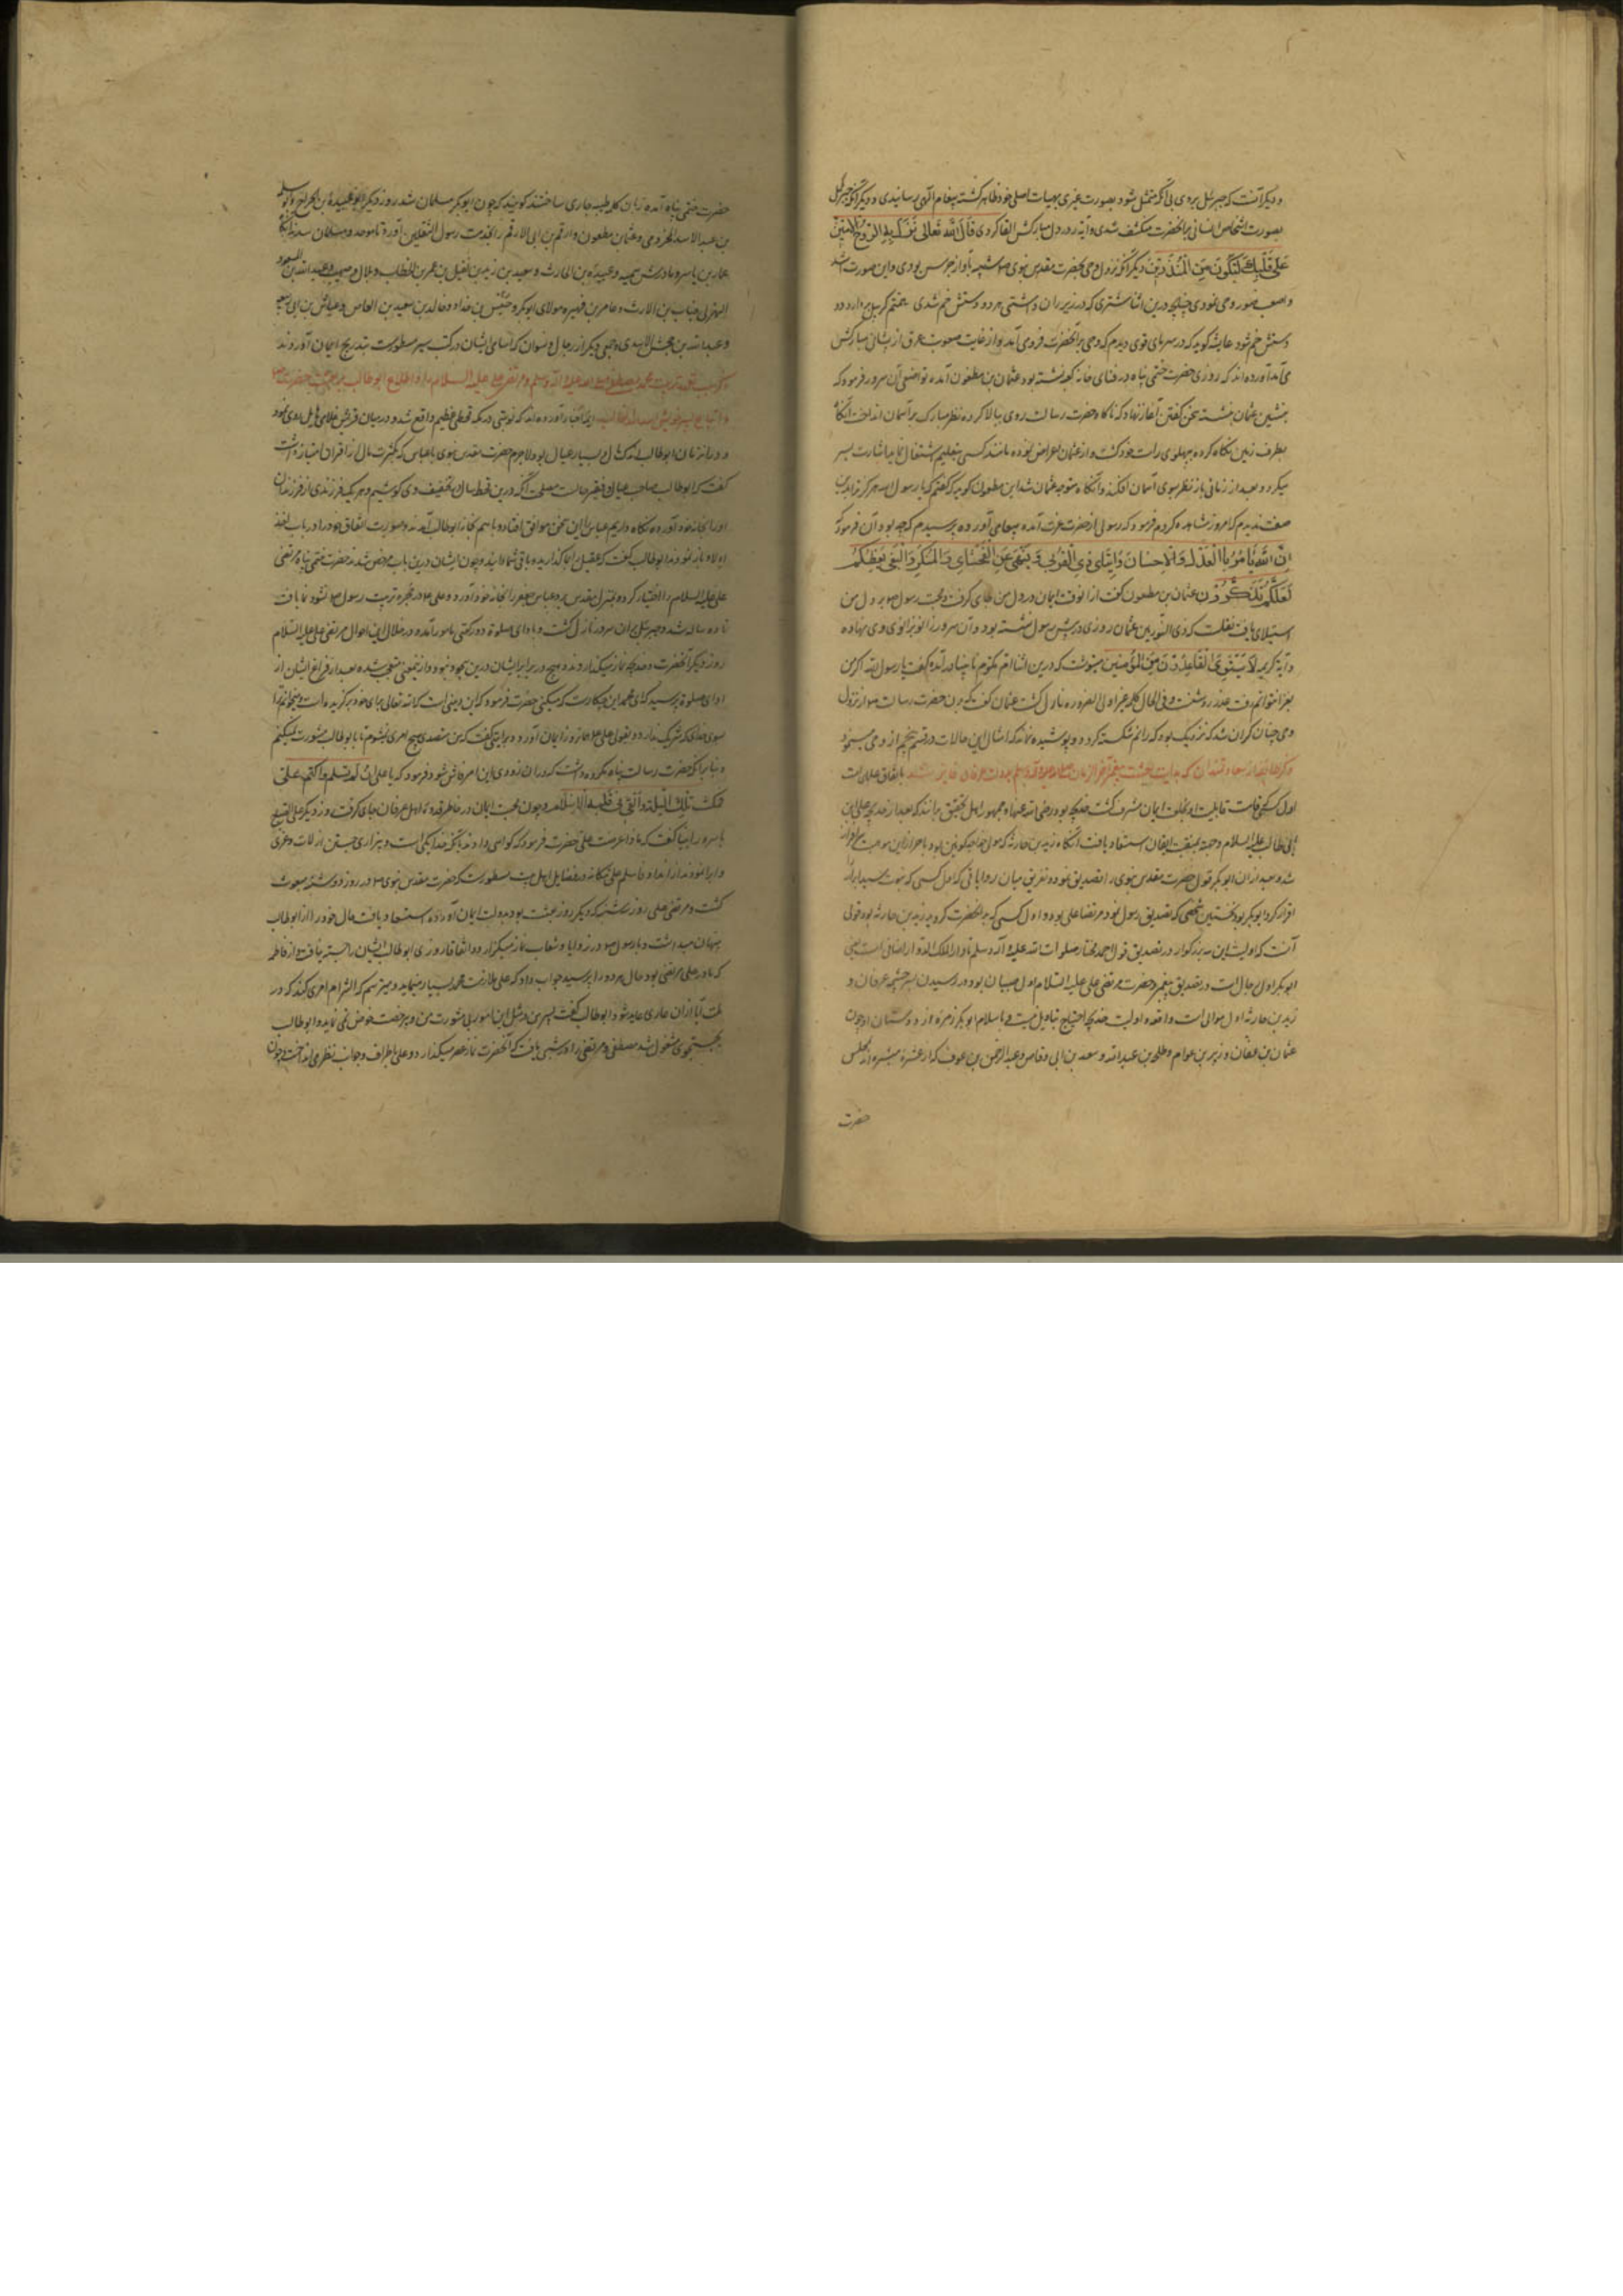 و دیگر آنست که جبرئیل بروی بی آنکه متمثل شود بصورت غیری بهیات اصلی خود ظاهر کشته پیغام آلهی رسانیدی و دیگر آنکه جبرئیل
بصورت اشخاص انسانی بر آنحضرت منکشف شدی و آیه رد در دل مبارکش القا کردی قال الله تعالی نزل به الروح الامین
علی قلبک لتکون من المنذرین دیگر آنکه نزول وحی بحضرت مقدس نبوی صلعم شبیه بآواز جرس بودی و این صورت اشد
و اصعب صور وحی نمودی چنانچه درین اثنا شتری که در زیر ران داشتی هر دو دستش خم شدی
دستش خم شود عایشه کوید که در سرمای قوی دیدم که وحی بر آنحضرت فرومی آمد و از غایت صعوبت عرق از پیشانی مبارکش
می آمد آورده اند که روزی حضرت ختمی پناه در فنای خانه کعبه نشسته بود عثمان بن مظعون آمده تواضعی آن سرور فرمود که
بنشین عثمان نشسته سخن کفتن آغاز نهاد که ناکاه حضرت رسالت روی ببالا کرده نظر مبارک بر آسمان انداخت آنکاه
بطرف زمین نکاه کرده بپهلوی راست خود کشت و از عثمان اعراض نموده مانند کسی بتعلیم اشتغال نماید اشارت بسر
میکرد و بعد از زمانی باز نظر سوی آسمان افکند و آنکاه متوجه عثمان شد ابن مظعون کوید که کفتم که یا رسول الله هرکز ترا بدین
صفت ندیدم که امروز مشاهده کردم فرمود که رسولی از حضرت عزت آمده پیغامی آورده پرسیدم که چه بود آن فرمود که
ان الله یامر بالعدل والاحسان وایتای ذی القربی وینهی عن الفحشای والمنکر والبغی یعظکم
لعلکم تذکرون عثمان بن مظعون کفت از آن وقت ایمان در دل من جای کرفت و محبت رسول صلعم بر دل من
استیلا یافت نقلست که ذی النورین عثمان روزی در پیش رسول نشسته بود و آن سرور زانو بر زانوی وی نهاده
و آیه کریمه لا یستوی القاعدون من المؤمنین مینوشت که درین اثنا ام مکتوم نابینا در آمده کفت یا رسول الله اکر من
بغزا نتوانم رفت عذر روشنست و فی الحال کلمه غیر اولی الضرر نازل کشت عثمان کفت که ران حضرت رسالت صلعم از نزول
وحی چنان کران شد که نزدیک بود که رانم شکسته کردد و پوشیده نماند که امثال این حالات در قسم پنجم از وحی مینمود
ذکر طایفه از سعادتمندان که بدایت بعثت پیغمبر آخر الزمان صلی الله علیه و آله وسلم بدولت عرفان فایز شدند باتفاق علما است
اول کسیکه قامت قابلیت او بخلعت ایمان مشرف کشت خدیجه بود رضی الله عنها و جمهور اهل تحقیق برانند که بعد از خدیجه علی ابن
ابی طالب علیه السلام و تحیة بمنقبت ایقان استسعاد یافت آنکاه زید بن حارثه که مولی خواجه کونین بود باحراز این موهبت سرافراز
شد و بعد از آن ابو بکر قول حضرت مقدس نبوی را تصدیق نمود و تفریق میان روایاتی که اول کسی که نبوت سید ابرار
اقرار کرد ابو بکر بود نخستین شخصی که تصدیق رسول نمود مرتضا علی بود و اول کسی که بر آنحضرت کروید زید بن حارثه بود قولی
آنست که اولیت این سه بزرکوار در تصدیق قول احمد مختار صلوات الله علیه و آله و سلم اضافی است یعنی
ابو بکر اول رجال است در تصدیق پیغمبر و حضرت مرتضی علی علیه السلام اول صبیان بود در رسیدن سرچشمه عرفان و
زید بن حارثه اول موالی است و اقعده اولیت خدیجه احتیاج بتاویل نیست و باسلام ابو بکر زمره از دوستان او چون
عثمان بن عفان و زبیر بن عوام و طلحه بن عبید الله و سعد بن ابی وقاص و عبد الرحمن بن عوف که از عشره مبشره اند بمجلس
حضرت
حضرت ختمی پناه آمده زبان بکلمه طیبه جاری ساختند کویند که چون ابو بکر مسلمان شد روز دیکر ابو عبیدة بن الجراح و ابو سلمه
بن عبد الاسد المخزومی و عثمان مظعون و ارقم بن ابی الارقم را بخدمت رسول الثقلین آورد تا موحد و مسلمان شدند آنکاه
عمار بن یاسر و مادرش سمیه و عبیدة بن الحارث و سعید بن زید بن نفیل بن عمر بن الخطاب و بلال و صهیب و عبد الله بن مسعود
الهذلی و خباب بن الارت و عامر بن فهیره مولای ابو بکر و خنیس بن حذافه و خالد بن سعید بن العاص و عیاش بن ابی ربیعه
و عبد الله بن جحش الاسدی و جمعی دیکر از رجال و نسوان که اسامی ایشان در کتب سیر مسطورست بتدریج ایمان آوردند
محمد مصطفی صلی الله علیه و آله وسلم مرتضی علی علیه السلام را و اطلاع ابو طالب بر متابعت حضرت
آورده اند که نوبتی در مکه قحطی عظیم واقع شد و در میان قریش غلای هایل روی نمود
و در آن زمان ابو طالب اندک مال و بسیار عیال بود لاجرم حضرت مقدس نبوی با عباس که بکثرت مال از اقران امتیاز داشت
کفت که ابو طالب صاحب عیال و فقیر حالست مصلحت آنکه درین قحط سال بتخفیف وی کوشیم و هر یک فرزندی از فرزندان
او را بخانه خود آورده نکاه داریم عباس را این سخن موافق افتاد و با هم بخانه ابو طالب آمدند و صورت اتفاق خود را در باب اخذ
اولاد باز نمودند ابو طالب کفت که عقیل را بمن کذارید و باقی شما دانید و چون ایشان درین باب مرخص شدند حضرت ختمی پناه مرتضی
علی علیه السلام را اختیار کرده بمنزل مقدس برد و عباس جعفر را بخانه خود آورد و علی در حجره تربیت رسول صلعم نشو و نما یافت
تا ده ساله شد و جبرئیل بر آن سرور نازل کشت و بادای صلوة دو رکعتی مامور آمد و در خلال این احوال مرتضی علی علیه السلام
روز دیکر آنحضرت و خدیجه نماز میکذاردند و هیچ در برابر ایشان درین سجود نبود و از ینمعنی متعجب شده بعد از فراغ ایشان از
ادای صلوة پرسید که ای محمد این چکارست که میکنی حضرت فرمود که این دینی است که الله تعالی برای خود برکزیده است و میخوانم ترا
سوی خدای که شریک ندارد و بقولی علی همان روز ایمان آورد و بروایتی کفت که من متصدی هیچ امری نشوم تا با ابو طالب مشورت نمیکنم
و بنا بر آنکه حضرت رسالت پناه مکروه داشت که در آن زودی این امر فاش شود فرمود که یا علی ان لم تسلم فاکتم علی
فمکث تلک اللیلة والقی فی قلبه الاسلام و چون محبت ایمان در خاطر قدوه اهل عرفان جای کرفت روز دیکر علی الصباح
با سرور انبیا کفت که ماذا عرضت علی حضرت فرمود که کواهی دادن بآنکه خدا یکی است و بیزاری جستن از لات و عزی
و ابا نمودن از انداد فاسلم علی مکانه و در فضایل اهل بیت مسطورست که حضرت مقدس نبوی صلعم در روز دوشنبه مبعوث
کشت و مرتضی علی روز سه شنبه که دیکر روز بعثت بود بدولت ایمان استسعاد یافت حال خود را از ابو طالب
پنهان میداشت و با رسول صلعم در زوایا و شعاب نماز میکزارد و اتفاقا روزی ابو طالب ایشان را جسته نیافت و از فاطمه
که مادر علی مرتضی بود حال هر دو را پرسید جواب داد که علی ملازمت محمد بسیار مینماید و میترسم که التزام امری کند که در
ملت آبا از آن عاری عاید شود ابو طالب کفت پسر من در مثل این امور بی مشورت من و بی رخصت خوض نمی نماید و ابو طالب
بجستجوی مشغول شد مصطفی و مرتضی را در شعبی یافت که آنحضرت نماز عصر میکذارد و علی اطراف و جوانب نظر می انداخت و چون